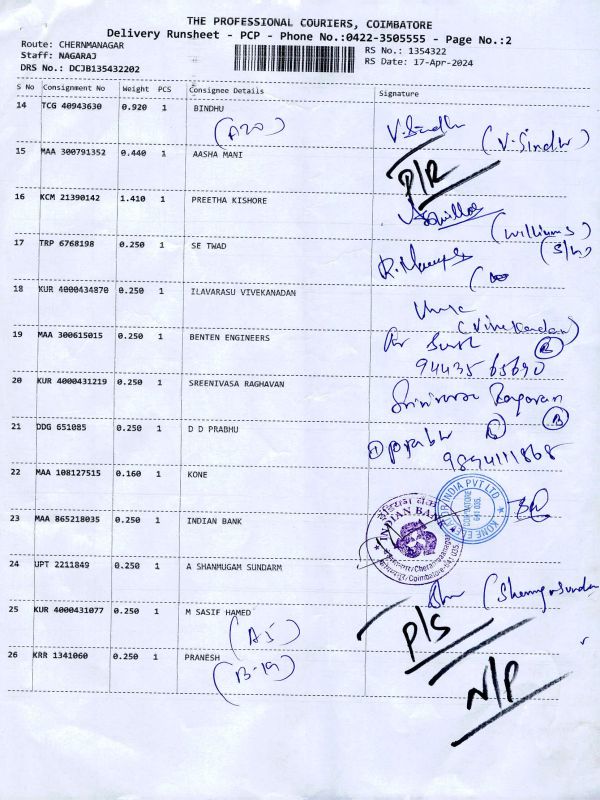 THE PROFESSIONAL COURIERS, COIMBATORE
Delivery Runsheet - PCP - Phone No.:0422-3505555 - Page No.:2
Route: CHERNMANAGAR
Staff: NAGARAJ
DRS No.: DCJB135432202
RS No.: 1354322
RS Date: 17-Apr-2024
S No Consignment No Weight PCS Consignee Details Signature
14 TCG 40943630 0.920 1 BINDHU
(A20) V.Sindhu (V.Sindhu)
15 MAA 300791352 0.440 1 AASHA MANI
P/R
16 KCM 21390142 1.410 1 PREETHA KISHORE
(Williams)
(S/w)
17 TRP 6768198 0.250 1 SE TWAD
18 KUR 4000434870 0.250 1 ILAVARASU VIVEKANADAN
(Vivekanadan)
19 MAA 300615015 0.250 1 BENTEN ENGINEERS
B
94435 65690
20 KUR 4000431219 0.250 1 SREENIVASA RAGHAVAN
Srinivasa Ragavan
B
21 DDG 651085 0.250 1 D D PRABHU
D prabhu B
9894111868
22 MAA 108127515 0.160 1 KONE
KONE ELEVATOR INDIA PVT LTD
COIMBATORE
641 005.
23 MAA 865218035 0.250 1 INDIAN BANK
इंडियन बैंक
INDIAN BANK
Coimbatore-641 035
24 UPT 2211849 0.250 1 A SHANMUGAM SUNDARM
25 KUR 4000431077 0.250 1 M SASIF HAMED
(A5) P/S
26 KRR 1341060 0.250 1 PRANESH
(B-19) N/P